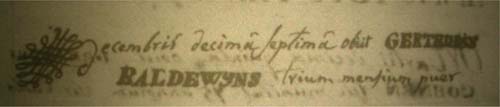 Decembris decimâ septimâ obiit GERTRUDIS
BALDEWYNS trium mensium puer